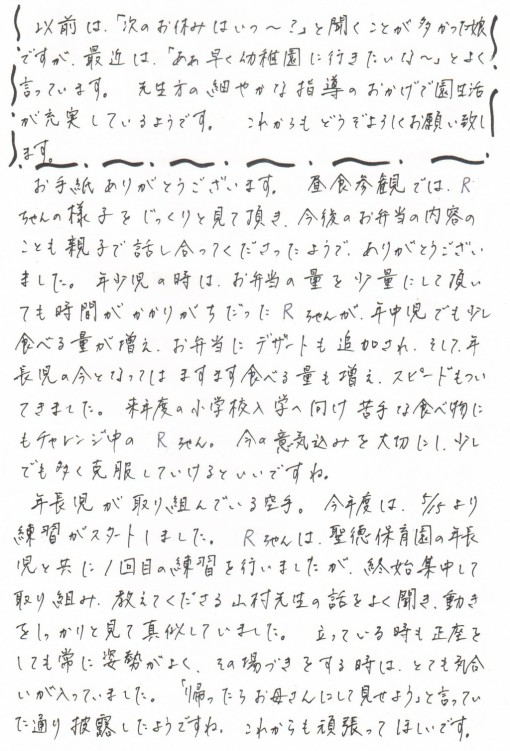 以前は、「次のお休みはいつ〜?」と聞くことが多かった娘
ですが、最近は、「あぁ早く幼稚園に行きたいな〜」とよく
言っています。 先生方の細やかな指導のおかげで園生活
が充実しているようです。 これからもどうぞよろしくお願い致し
ます。
お手紙ありがとうございます。 昼食参観では、R
ちゃんの様子をじっくりと見て頂き、今後のお弁当の内容の
ことも親子で話し合ってくださったようで、ありがとうござい
ました。 年少児の時は、お弁当の量を少量にして頂い
ても時間がかかりがちだった Rちゃんが、年中児でも少し
食べる量が増え、お弁当にデザートも追加され、そして、年
長児の今となってはますます食べる量も増え、スピードもつい
てきました。 来年度の小学校入学へ向け苦手な食べ物に
もチャレンジ中の Rちゃん。 今の意気込みを大切にし、少し
でも多く克服していけるといいですね。
年長児が取り組んでいる空手。 今年度は、5/15より
練習がスタートしました。 Rちゃんは、聖徳保育園の年長
児と共に1回目の練習を行いましたが、終始集中して
取り組み、教えてくださる山村先生の話をよく聞き、動き
をしっかりと見て真似していました。 立っている時も正座を
しても常に姿勢がよく、その場づきをする時は、とても気合
いが入っていました。 「帰ったらお母さんにして見せよう」と言ってい
た通り披露したようですね。 これからも頑張ってほしいです。